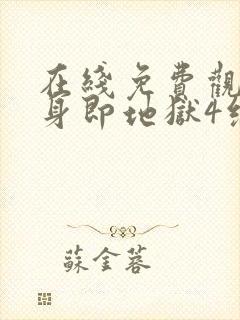 在綫免費觀
身即地獄4
蘇金蓉